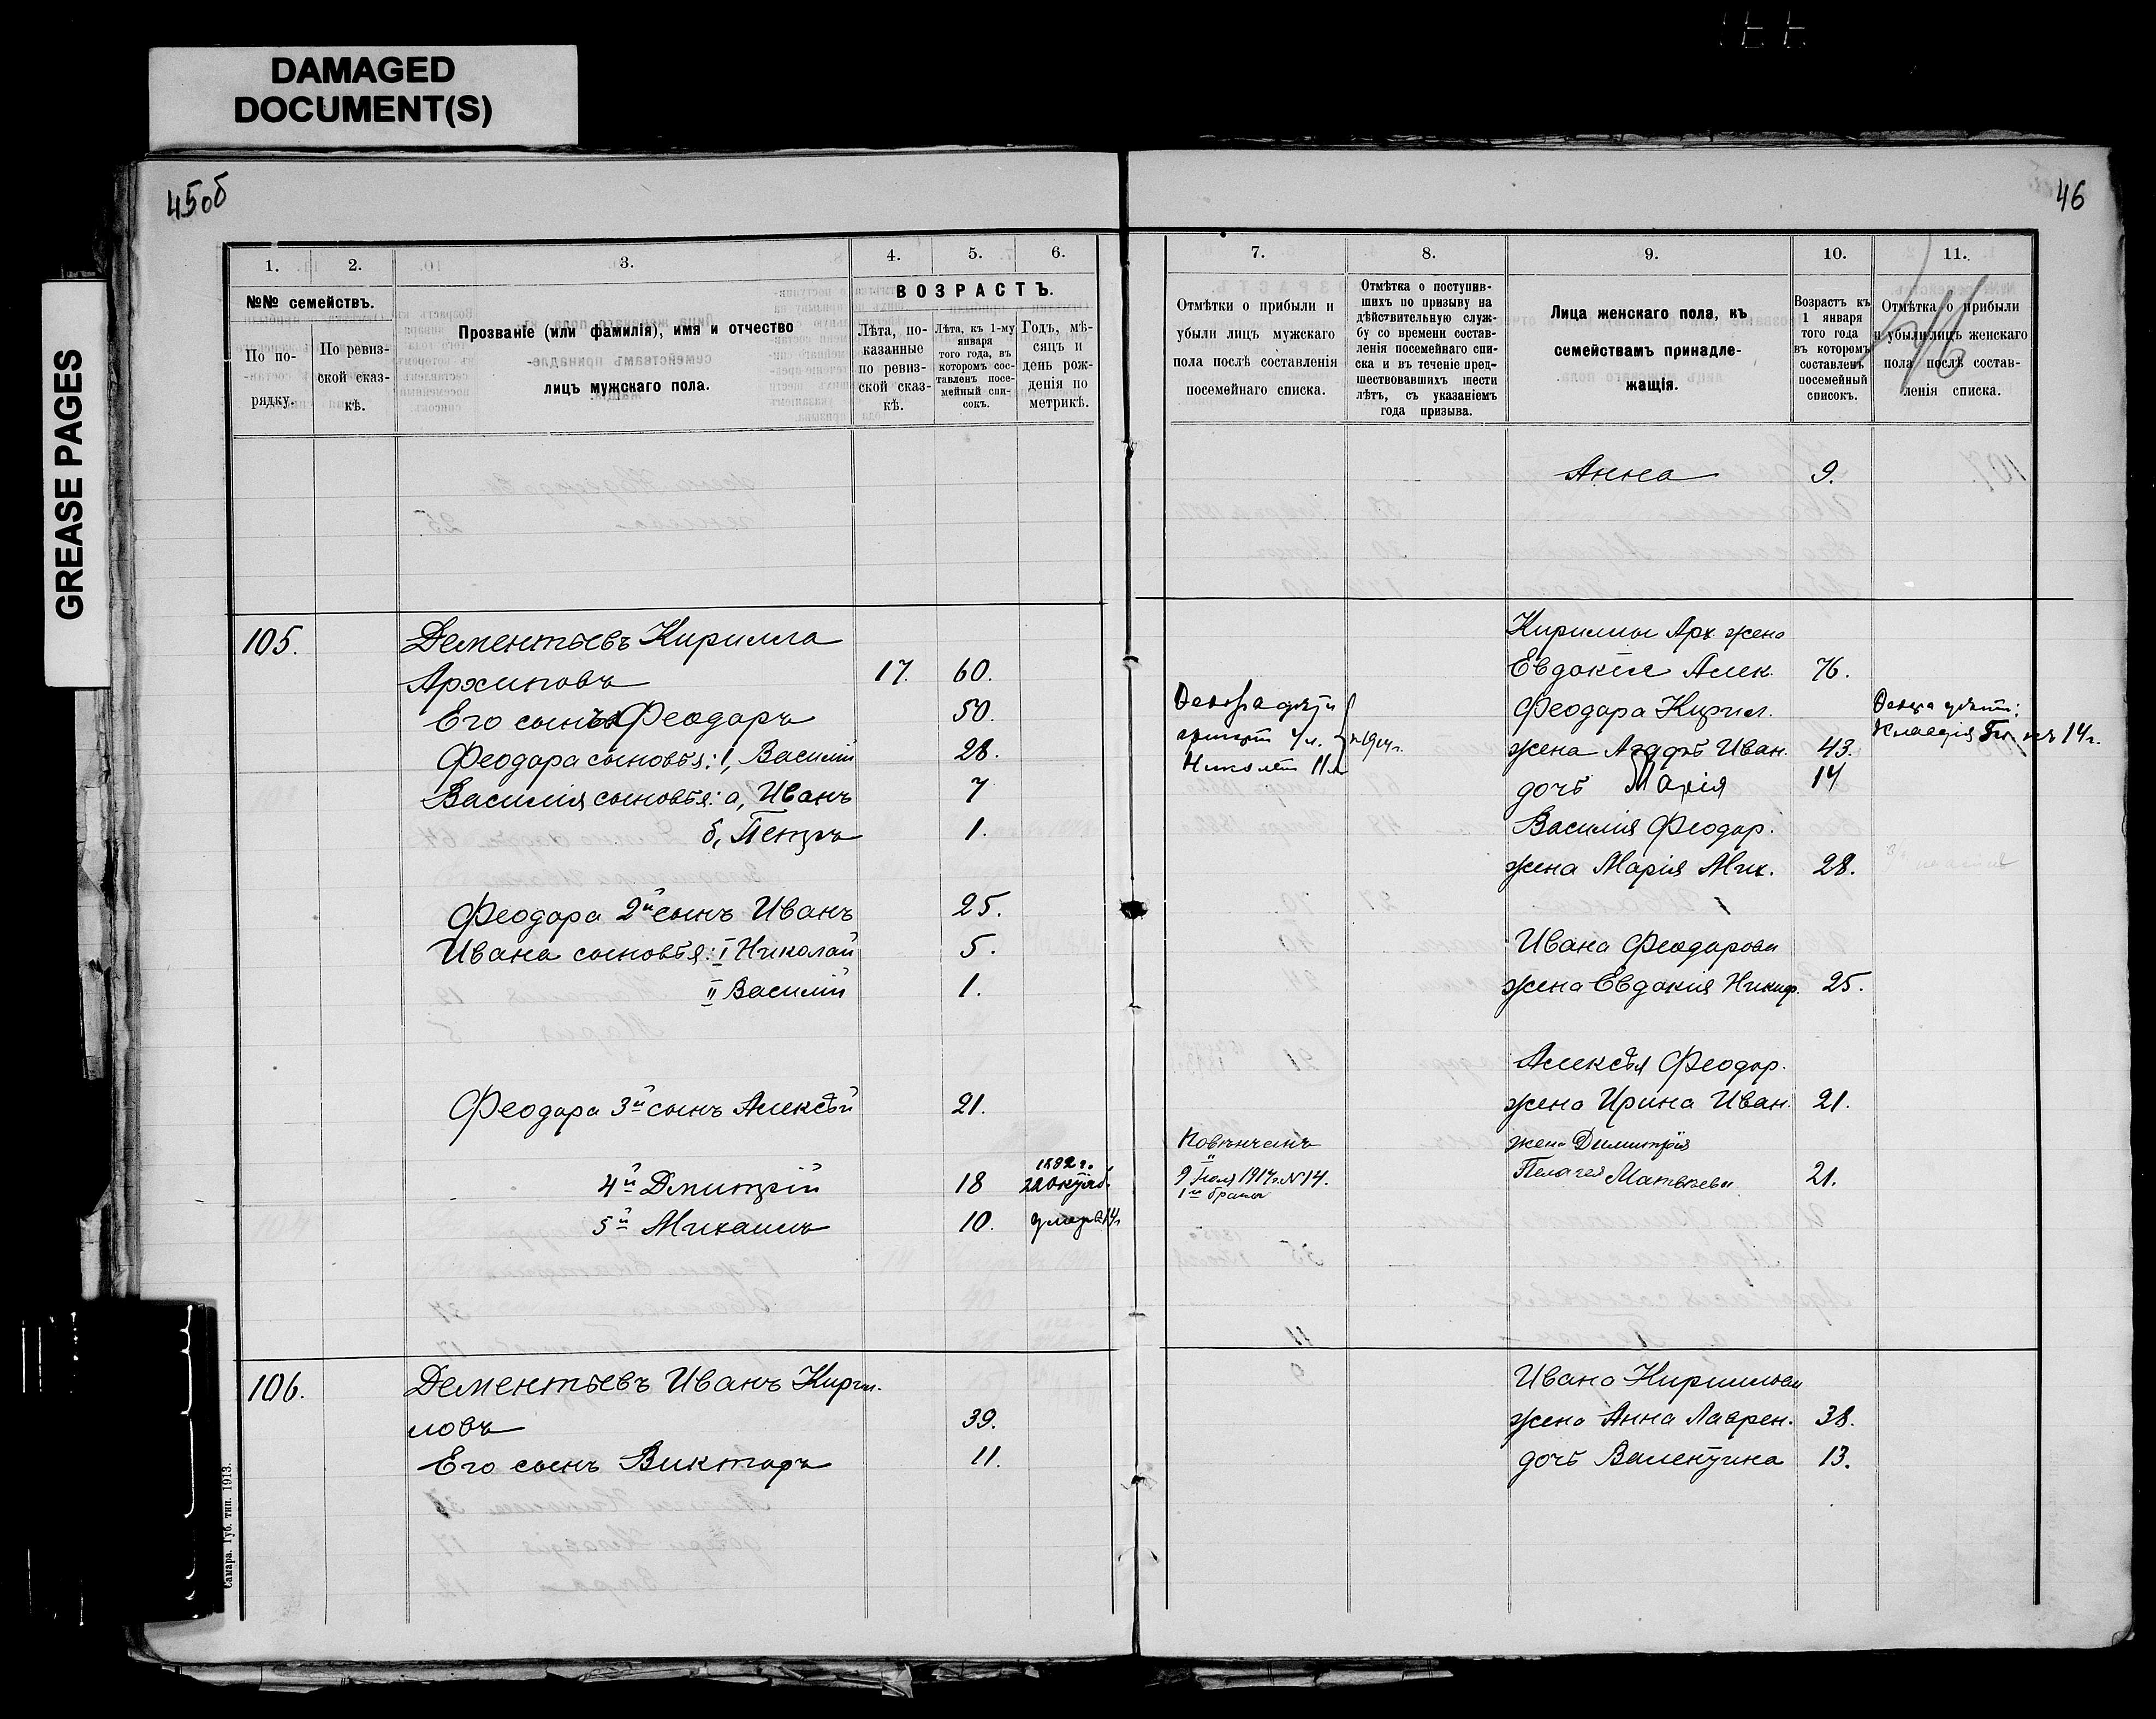 DAMAGED
DOCUMENT(S)
GREASE PAGES
45об
46
1.
2.
3.
4.
5.
6.
7.
8.
9.
10.
11.
№№ семействъ.
По по-
рядку.
По ревиз-
ской сказ-
кѣ.
Прозваніе (или фамилія), имя и отчество
лицъ мужскаго пола.
ВОЗРАСТЪ.
Лѣта, по-
казанные
по ревиз-
ской сказ-
кѣ.
Лѣта, къ 1-му
января
того года, въ
которомъ сос-
тавленъ посе-
мейный спи-
сокъ.
Годъ, мѣ-
сяцъ и
день рож-
денія по
метрикѣ.
Отмѣтки о прибыли и
убыли лицъ мужскаго
пола послѣ составленія
посемейнаго списка.
Отмѣтка о поступив-
шихъ по призыву на
дѣйствительную служ-
бу со времени состав-
ленія посемейнаго спи-
ска и въ теченіе пред-
шествовавшихъ шести
лѣтъ, съ указаніемъ
года призыва.
Лица женскаго пола, къ
семействамъ принадле-
жащія.
Возрастъ къ
1 января
того года
въ которомъ
составленъ
посемейный
списокъ.
Отмѣтка о прибыли
и убыли лицъ женскаго
пола послѣ состав-
ленія списка.
Анна 9.
105. Дементьевъ Кирилла
Архиповъ 17. 60.
Его сынъ Феодоръ 50.
Феодора сыновья: 1, Василій 28.
Василія сыновья: а, Иванъ 7
б, Петръ 1.
Феодора 2й сынъ Иванъ 25.
Ивана сыновья: I Николай 5.
II Василій 1.
Феодора 3й сынъ Алексѣй 21.
4й Дмитрій 18 1892 г.
5й Михаилъ 10.
Кириллы Арх. жена
Евдокія Алек. 76.
Феодора Кирил.
жена Иван. 43.
дочь Марія 14
Василія Феодор.
жена Марія Мих. 28.
Ивана Феодорова
жена Евдокія Никиф. 25.
Алексѣя Феодор.
жена Ирина Иван. 21.
жена Димитрія
Пелагея Матвѣева 21.
Повѣнчанъ
9 1914 г. №14.
1мъ бракомъ
106. Дементьевъ Иванъ Кирил-
ловъ 39.
Его сынъ Викторъ 11.
Ивана Кириллова
жена Анна Лаврен. 38.
дочь Валентина 13.
Самара. Губ. тип. 1913.